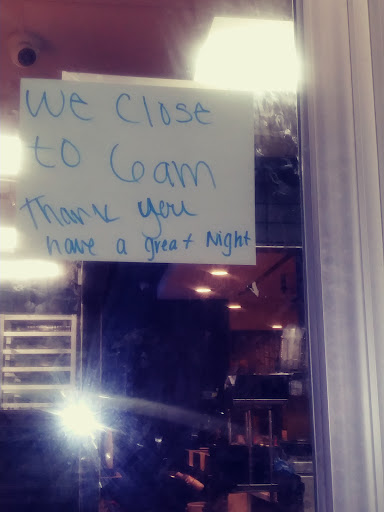 We Close
to 6am
Thank you
have a great Night